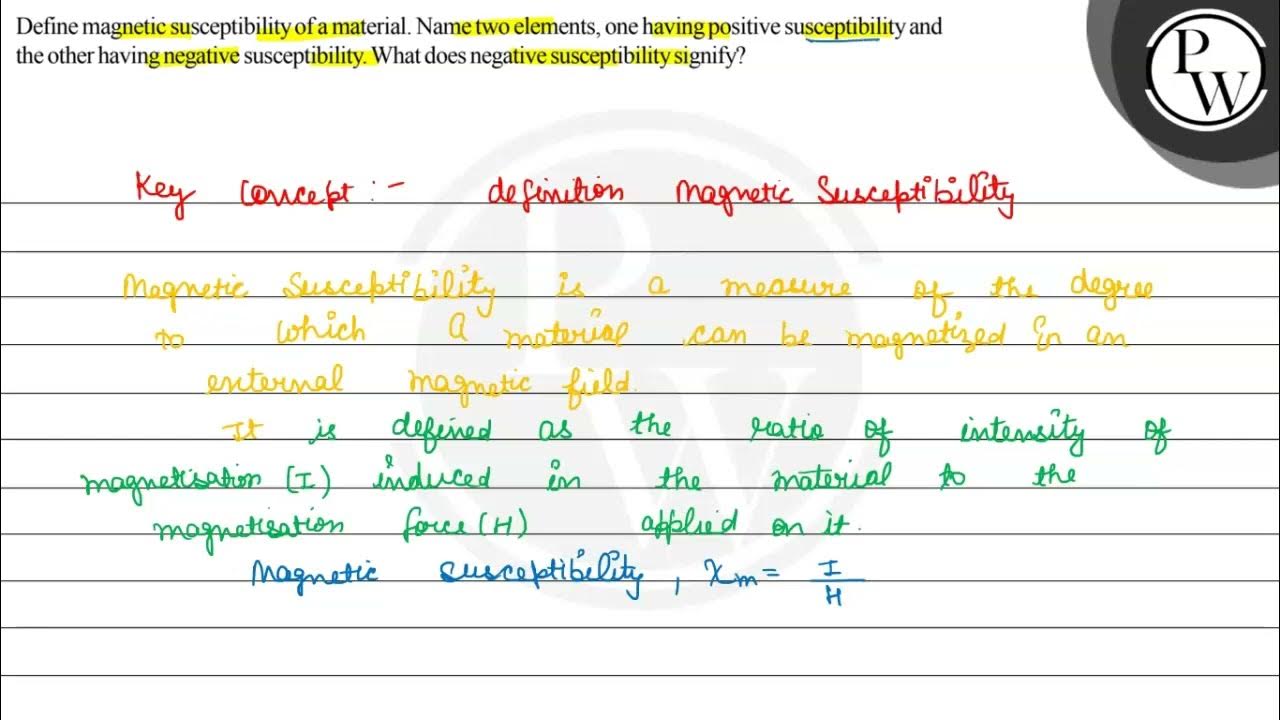 Define magnetic susceptibility of a material. Name two elements, one having positive susceptibility and
the other having negative susceptibility. What does negative susceptibility signify?
P
W
Key Concept :- definition Magnetic Susceptibility
Magnetic Susceptibility is a measure of the degree
to which a material can be magnetized in an
external magnetic field.
It is defined as the ratio of intensity of
magnetisation (I) induced in the material to the
magnetisation force (H) applied on it.
Magnetic susceptibility, χm = I/H